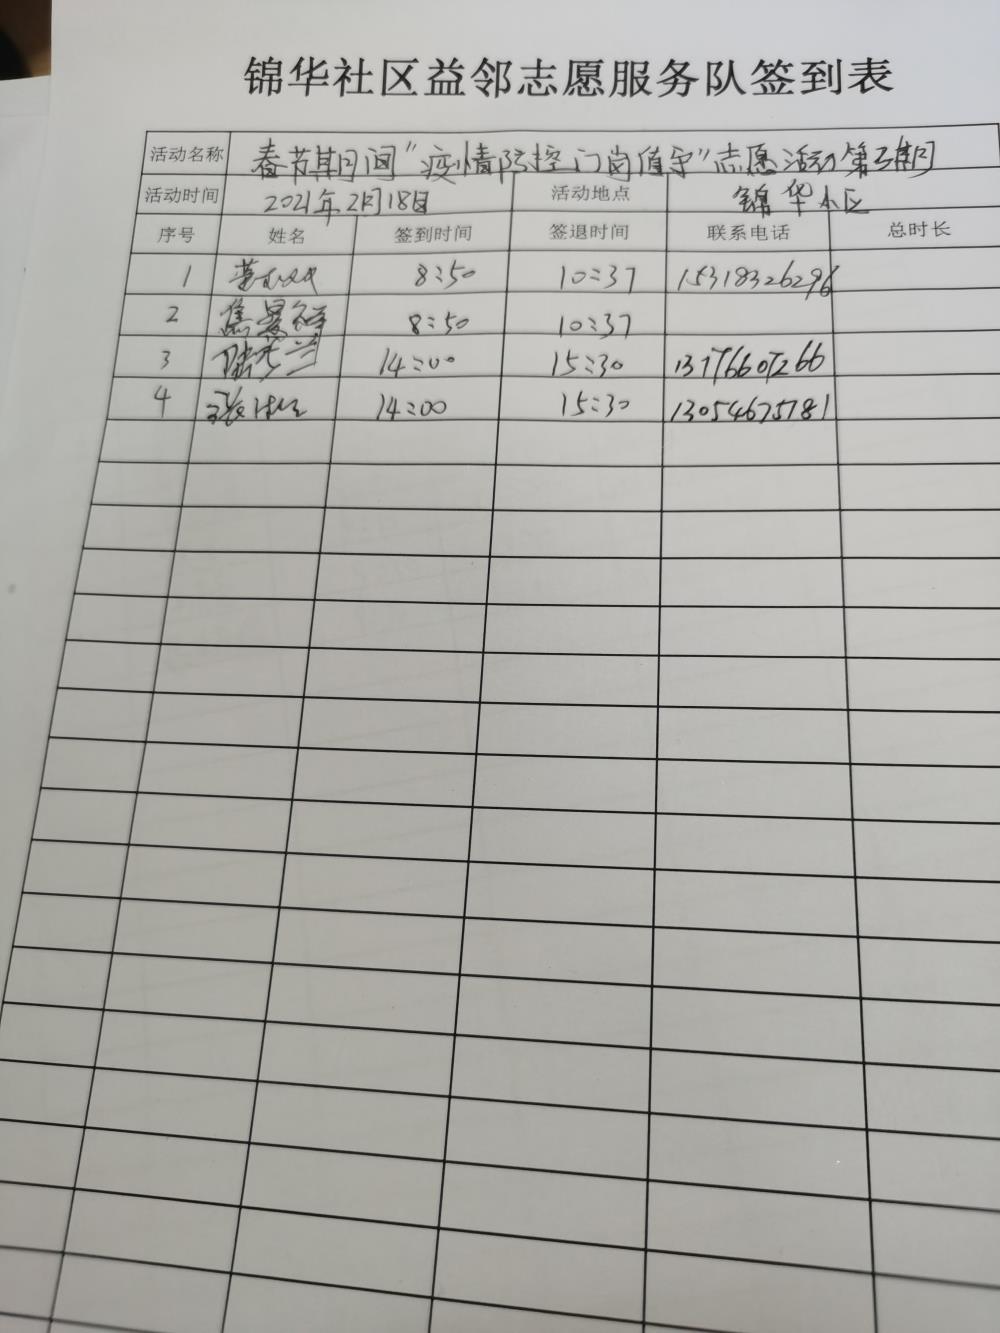 锦华社区益邻志愿服务队签到表
活动名称 春节期间"疫情防控门岗值守"志愿活动第五期
活动时间 2021年2月18日 活动地点 锦华小区
序号 姓名 签到时间 签退时间 联系电话 总时长
1 8:50 10:37 15318326296
2 焦景祥 8:50 10:37
3 14:00 15:30
4 14:00 15:30 13054675781